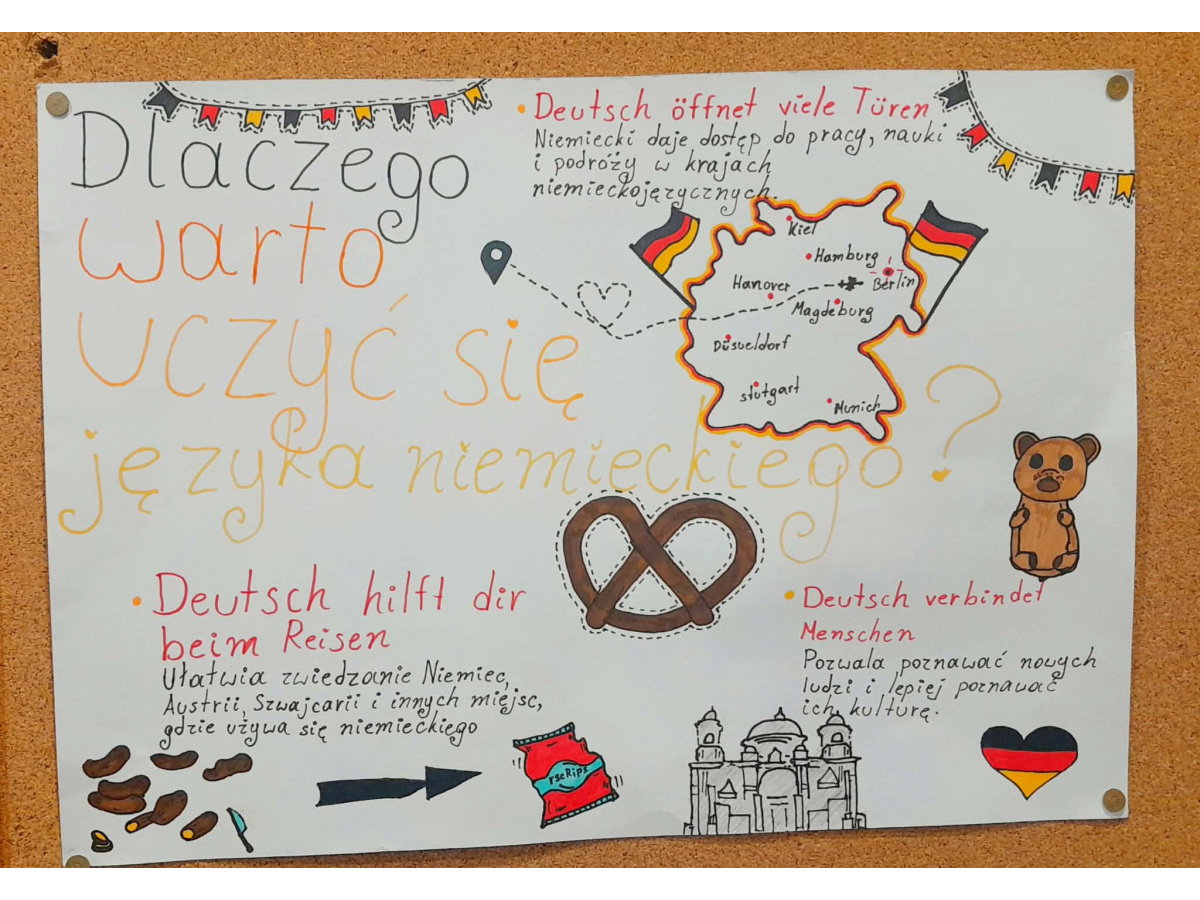 Dlaczego
warto
uczyć się
języka niemieckiego?
• Deutsch öffnet viele Türen
Niemiecki daje dostęp do pracy, nauki
i podróży w krajach
niemieckojęzycznych.
Kiel
Hamburg
Berlin
Hanover
Magdeburg
Düsueldorf
stutgart
Munich
• Deutsch hilft dir
beim Reisen
Ułatwia zwiedzanie Niemiec,
Austrii, Szwajcarii i innych miejsc,
gdzie używa się niemieckiego
• Deutsch verbindet
Menschen
Pozwala poznawać nowych
ludzi i lepiej poznawać
ich kulturę.